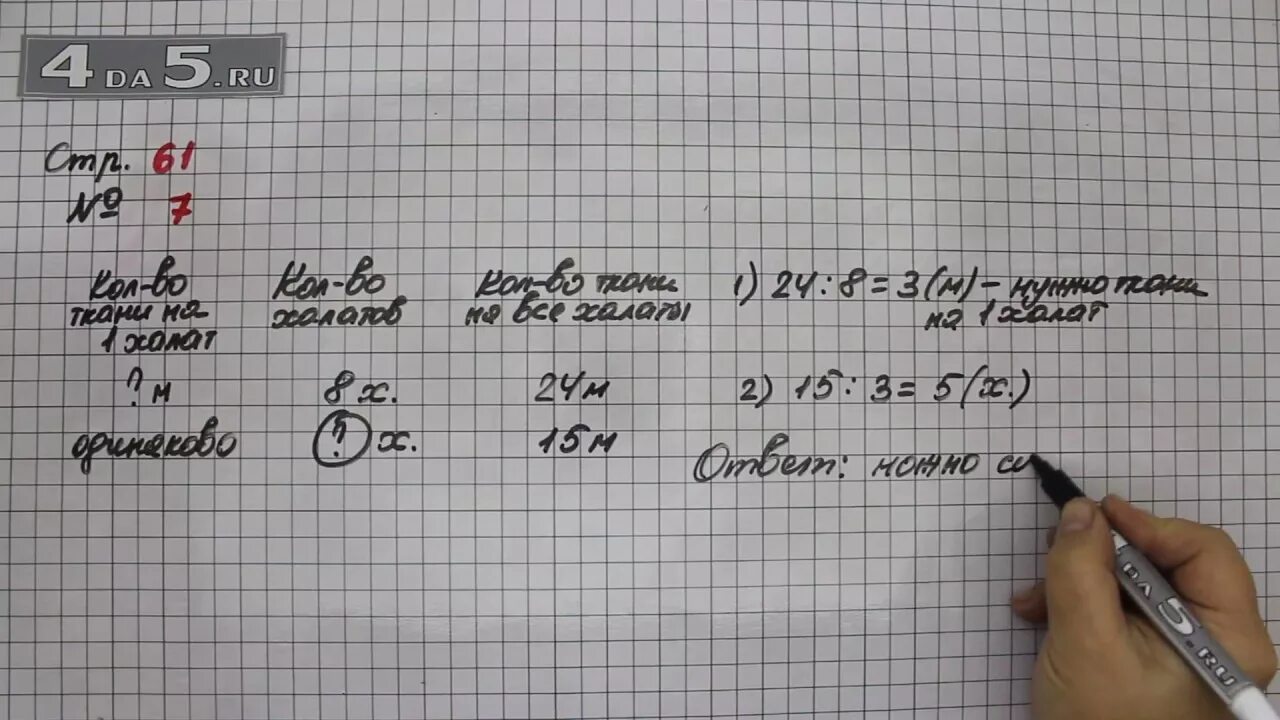 4DA5.RU
Стр. 61
№ 7
Кол-во
ткани на
1 халат
Кол-во
халатов
Кол-во ткани
на все халаты
? м
8 х.
24 м
одинаково
? х.
15 м
1) 24 : 8 = 3 (м) - нужно ткани
на 1 халат
2) 15 : 3 = 5 (х.)
Ответ: можно
DA 5.RU